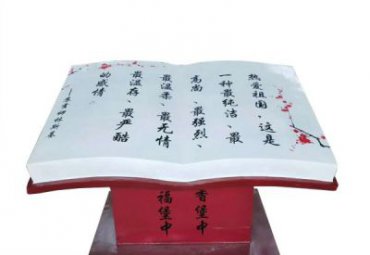 热爱祖国，这是
一种最纯洁、最
高尚、最强烈、
最温柔、最无情
最温存、最严酷
的感情。
——苏霍姆林斯基
香堡中
福堡中